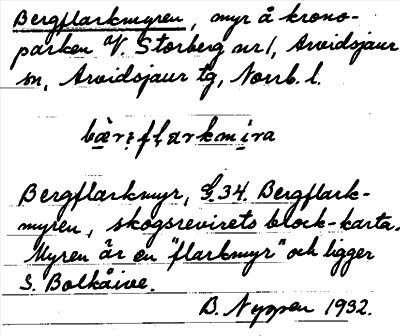 Bergflarkmyren, myr å krono-
parken V. Storberg nr 1, Arvidsjaur
sn, Arvidsjaur tg, Norrb. l.
Bergflarkmyr, G.34. Bergflark-
myren, skogsrevirets block-karta.
Myren är en "flarkmyr" och ligger
S. Bolkåive.
B. Nyppen 1932.